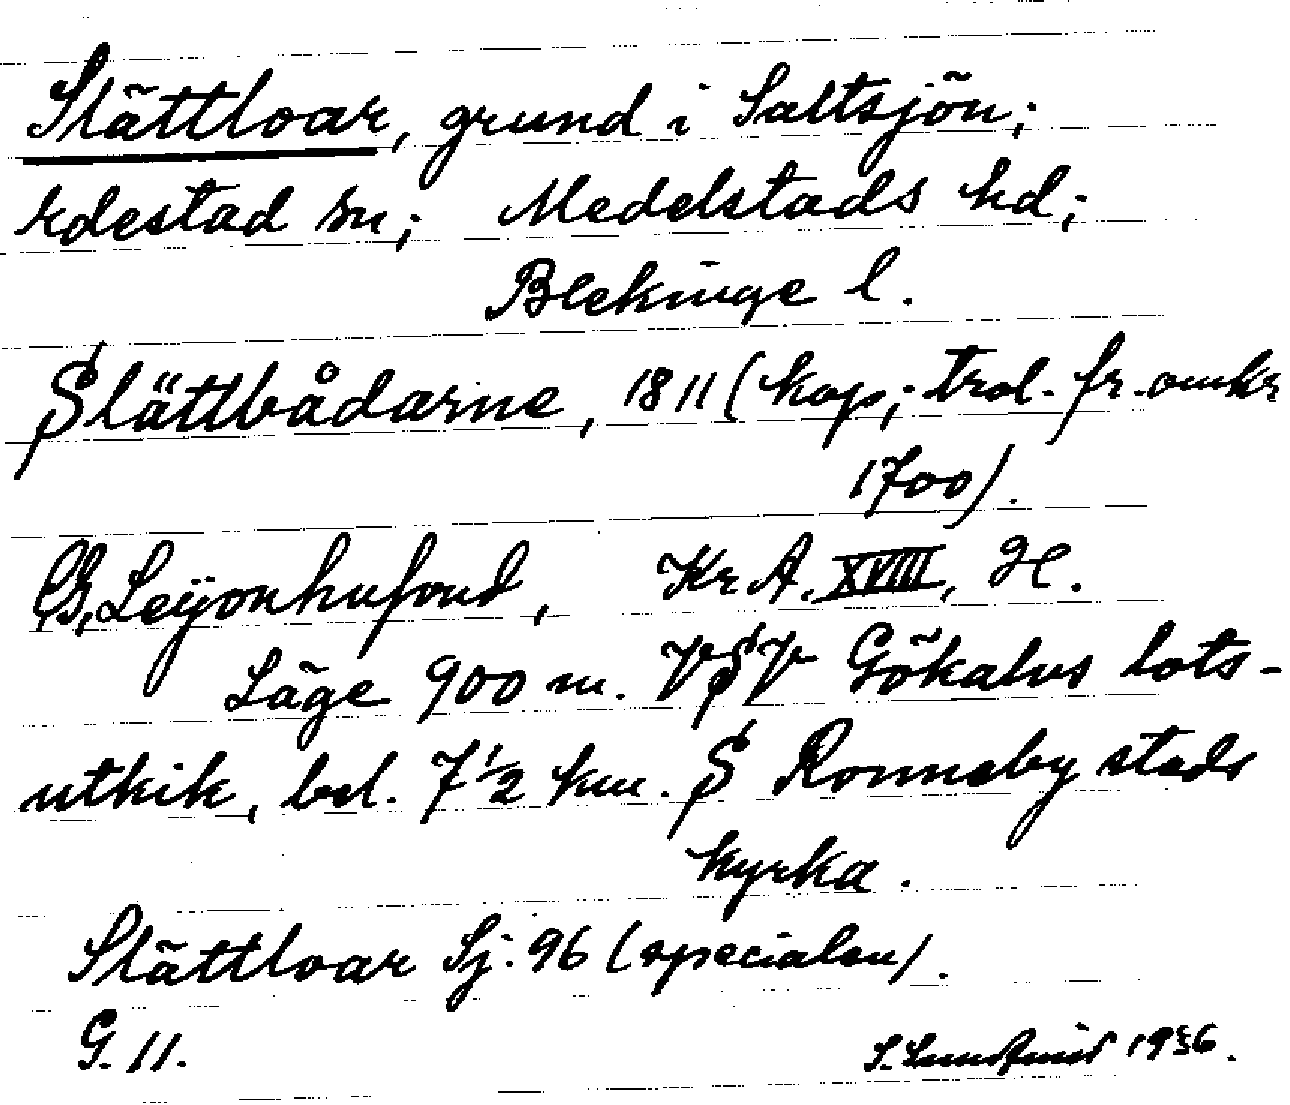 Slättloar, grund i Saltsjön;
Edestad sn; Medelstads hd;
Blekinge l.
Slättbådarne, 1811 (kop; trol. fr. omkr
1700).
G. Leijonhufvud, Kr A. XVIII, H.
Läge 900 m. VSV Gökalvs lots-
utkik, bel. 7 1/2 km. S Ronneby stads
kyrka.
Slättloar Sj. 96 (specialen).
G. 11.
1936.